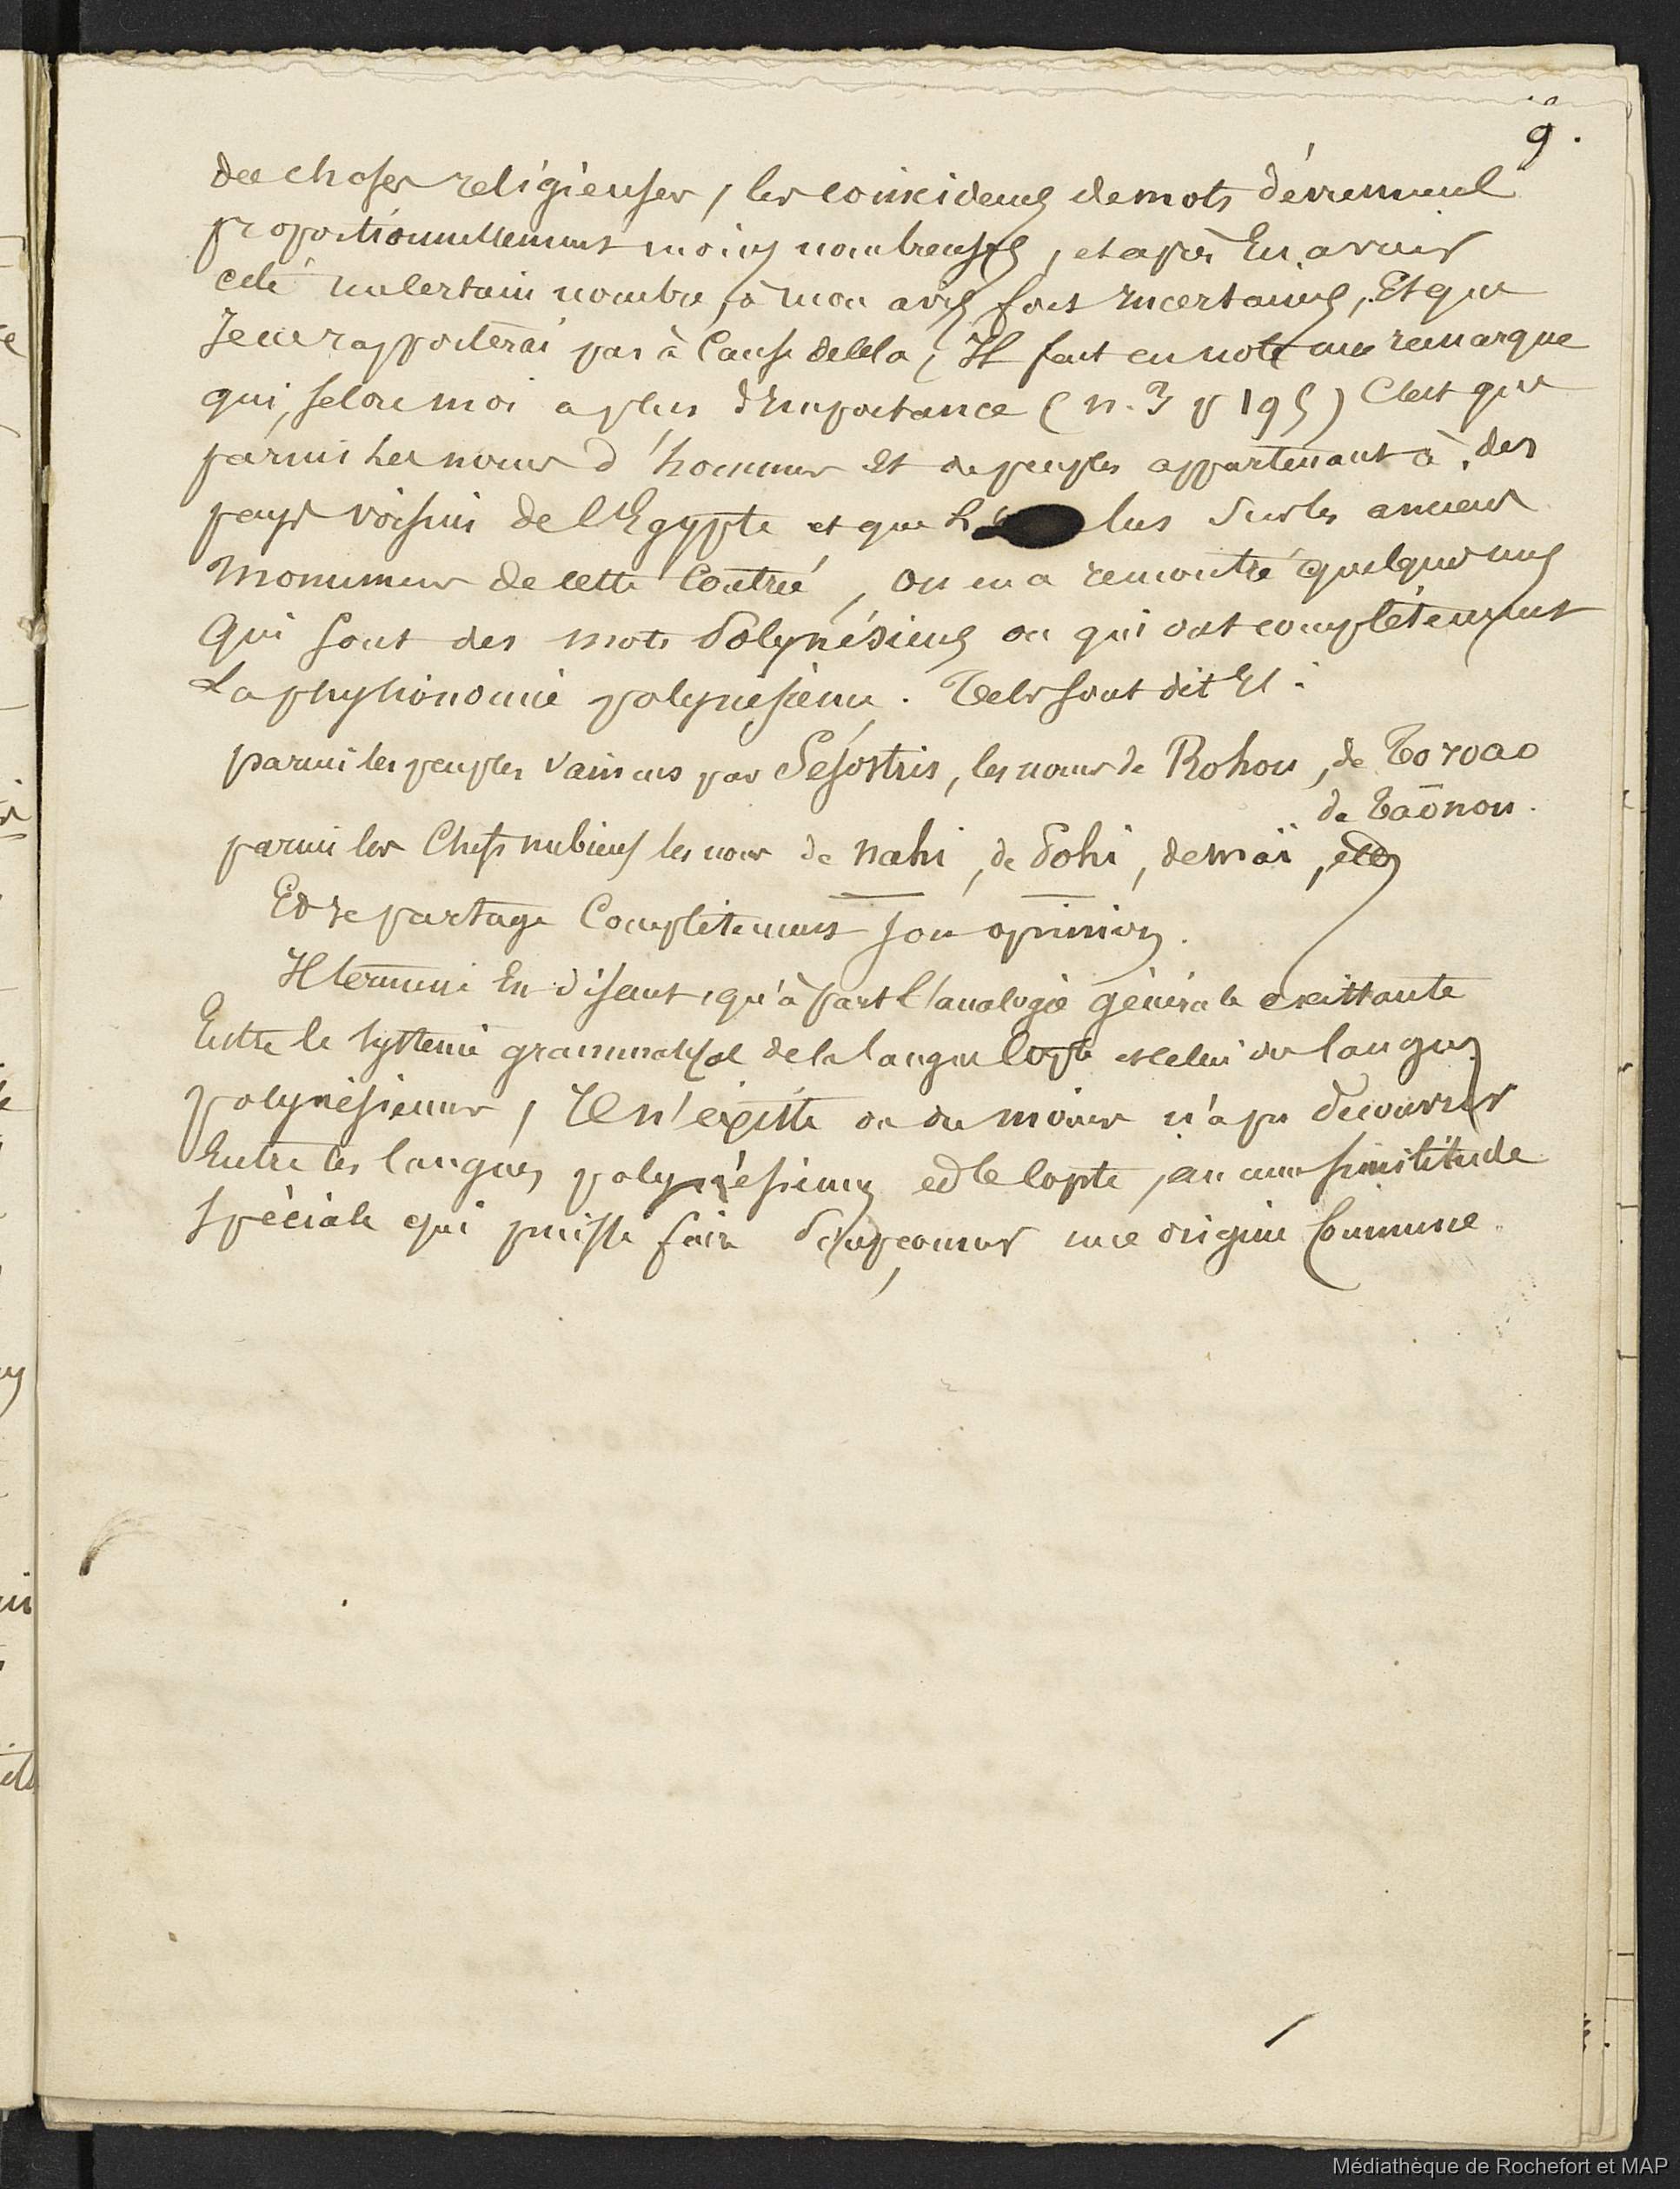 9.
des choses religieuses, les coincidences de mots deviennent
proportionnellement moins nombreuses, et après En avoir
cité un certain nombre, à mon avis fort Incertaines, Et que
Je ne rapporterai pas à Cause de cela, Il fait en note une remarque
qui, selon moi a plus d'Importance (n. 3 p 195) C'est que
parmi les noms d'hommes Et de peuples appartenant à des
pays voisins de l'Egypte et que l' lus sur les anciens
Monumens de cette Contrée, on en a rencontré quelques uns
Qui sont des mots Polynésiens ou qui ont complétement
La physionomie polynésienne. Tels sont dit Il :
parmi les peuples vaincus par Sésostris, les noms de Rohou, de Toroao
de Taōnou.
parmi les Chefs nubiens les noms de nahi, de Pohi, de maï, etc
Et Je partage Complétement son opinion.
Il termine En disant, qu'à part l'analogie générale existante
Entre le système grammatical de la langue Copte et celui des langues
polynésiennes, Il n'existe ou du moins n'a pu découvrir
Entre les langues polynésiennes et le Copte, aucune similitude
spéciale qui puisse faire soupçonner une origine Commune.
Médiathèque de Rochefort et MAP